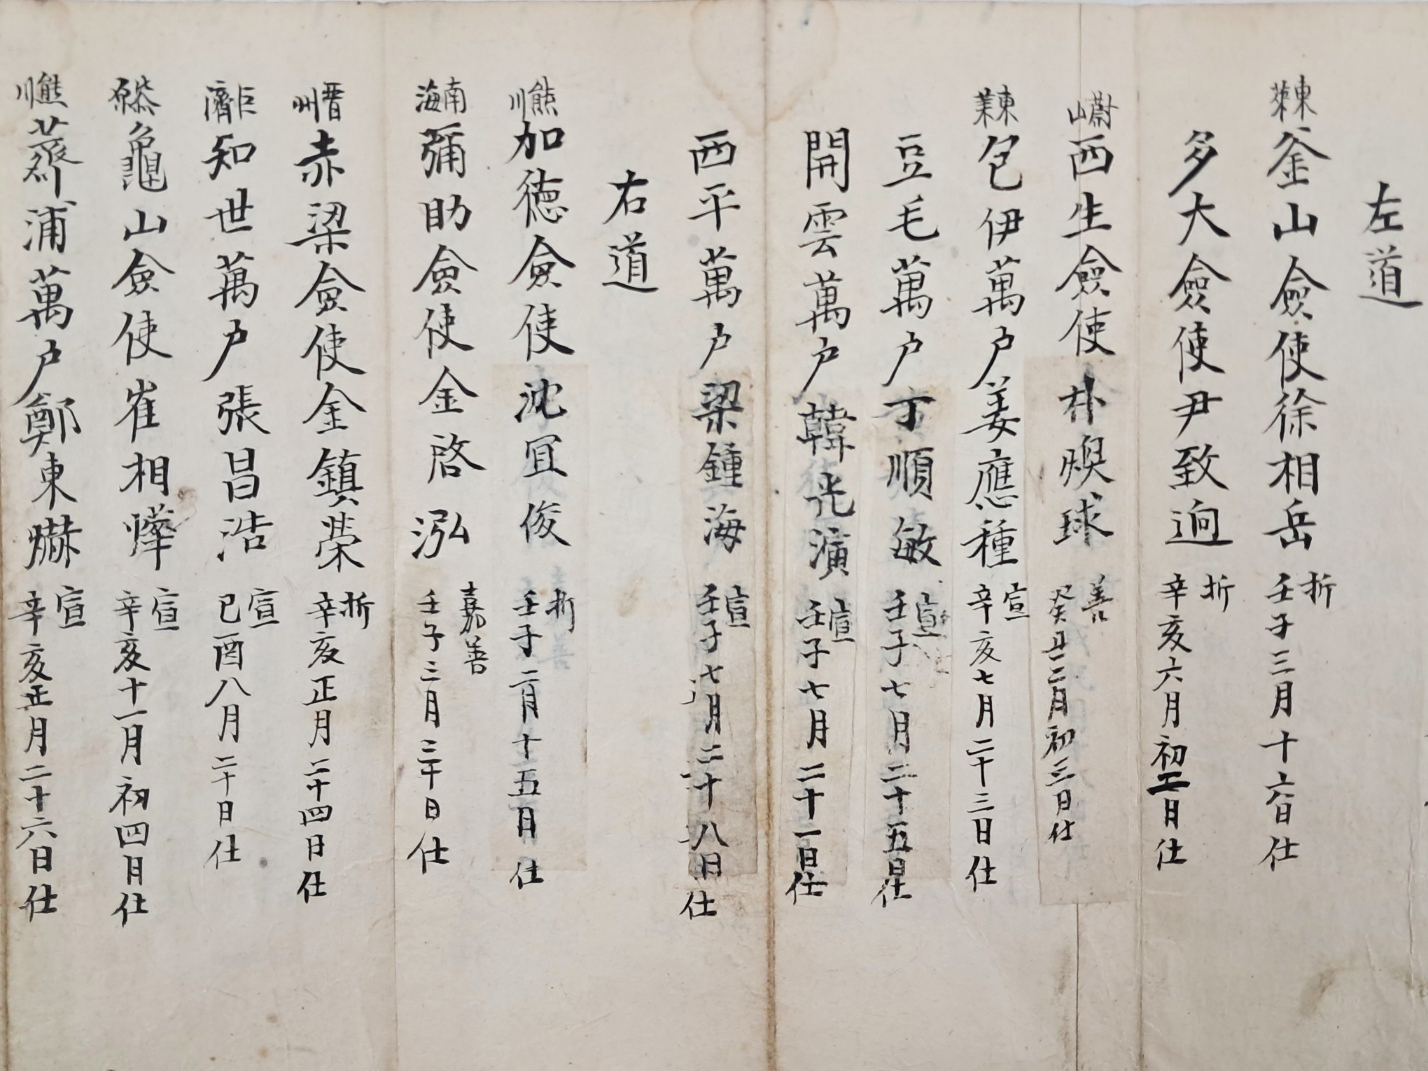 左道
東萊 釜山僉使徐相岳 折 壬子三月十六日仕
多大僉使尹致逈 折 辛亥六月初二日仕
蔚山 西生僉使朴煥球 善 癸丑二月初三日仕
東萊 包伊萬户姜應種 宣 辛亥七月二十三日仕
豆毛萬户丁順敏 宣 壬子七月二十五日仕
開雲萬户韓光演 宣 壬子七月二十一日仕
西平萬户梁鍾海 宣 壬子七月二十八日仕
右道
熊川 加德僉使沈宜俊 折 壬子二月十五日仕
南海 彌助僉使金啓泓 嘉善 壬子三月三十日仕
晋州 赤梁僉使金鎭榮 折 辛亥正月二十四日仕
巨濟 知世萬户張昌浩 宣 己酉八月二十日仕
龜山僉使崔相燁 宣 辛亥十一月初四日仕
熊川 薺浦萬户鄭東爀 宣 辛亥正月二十六日仕